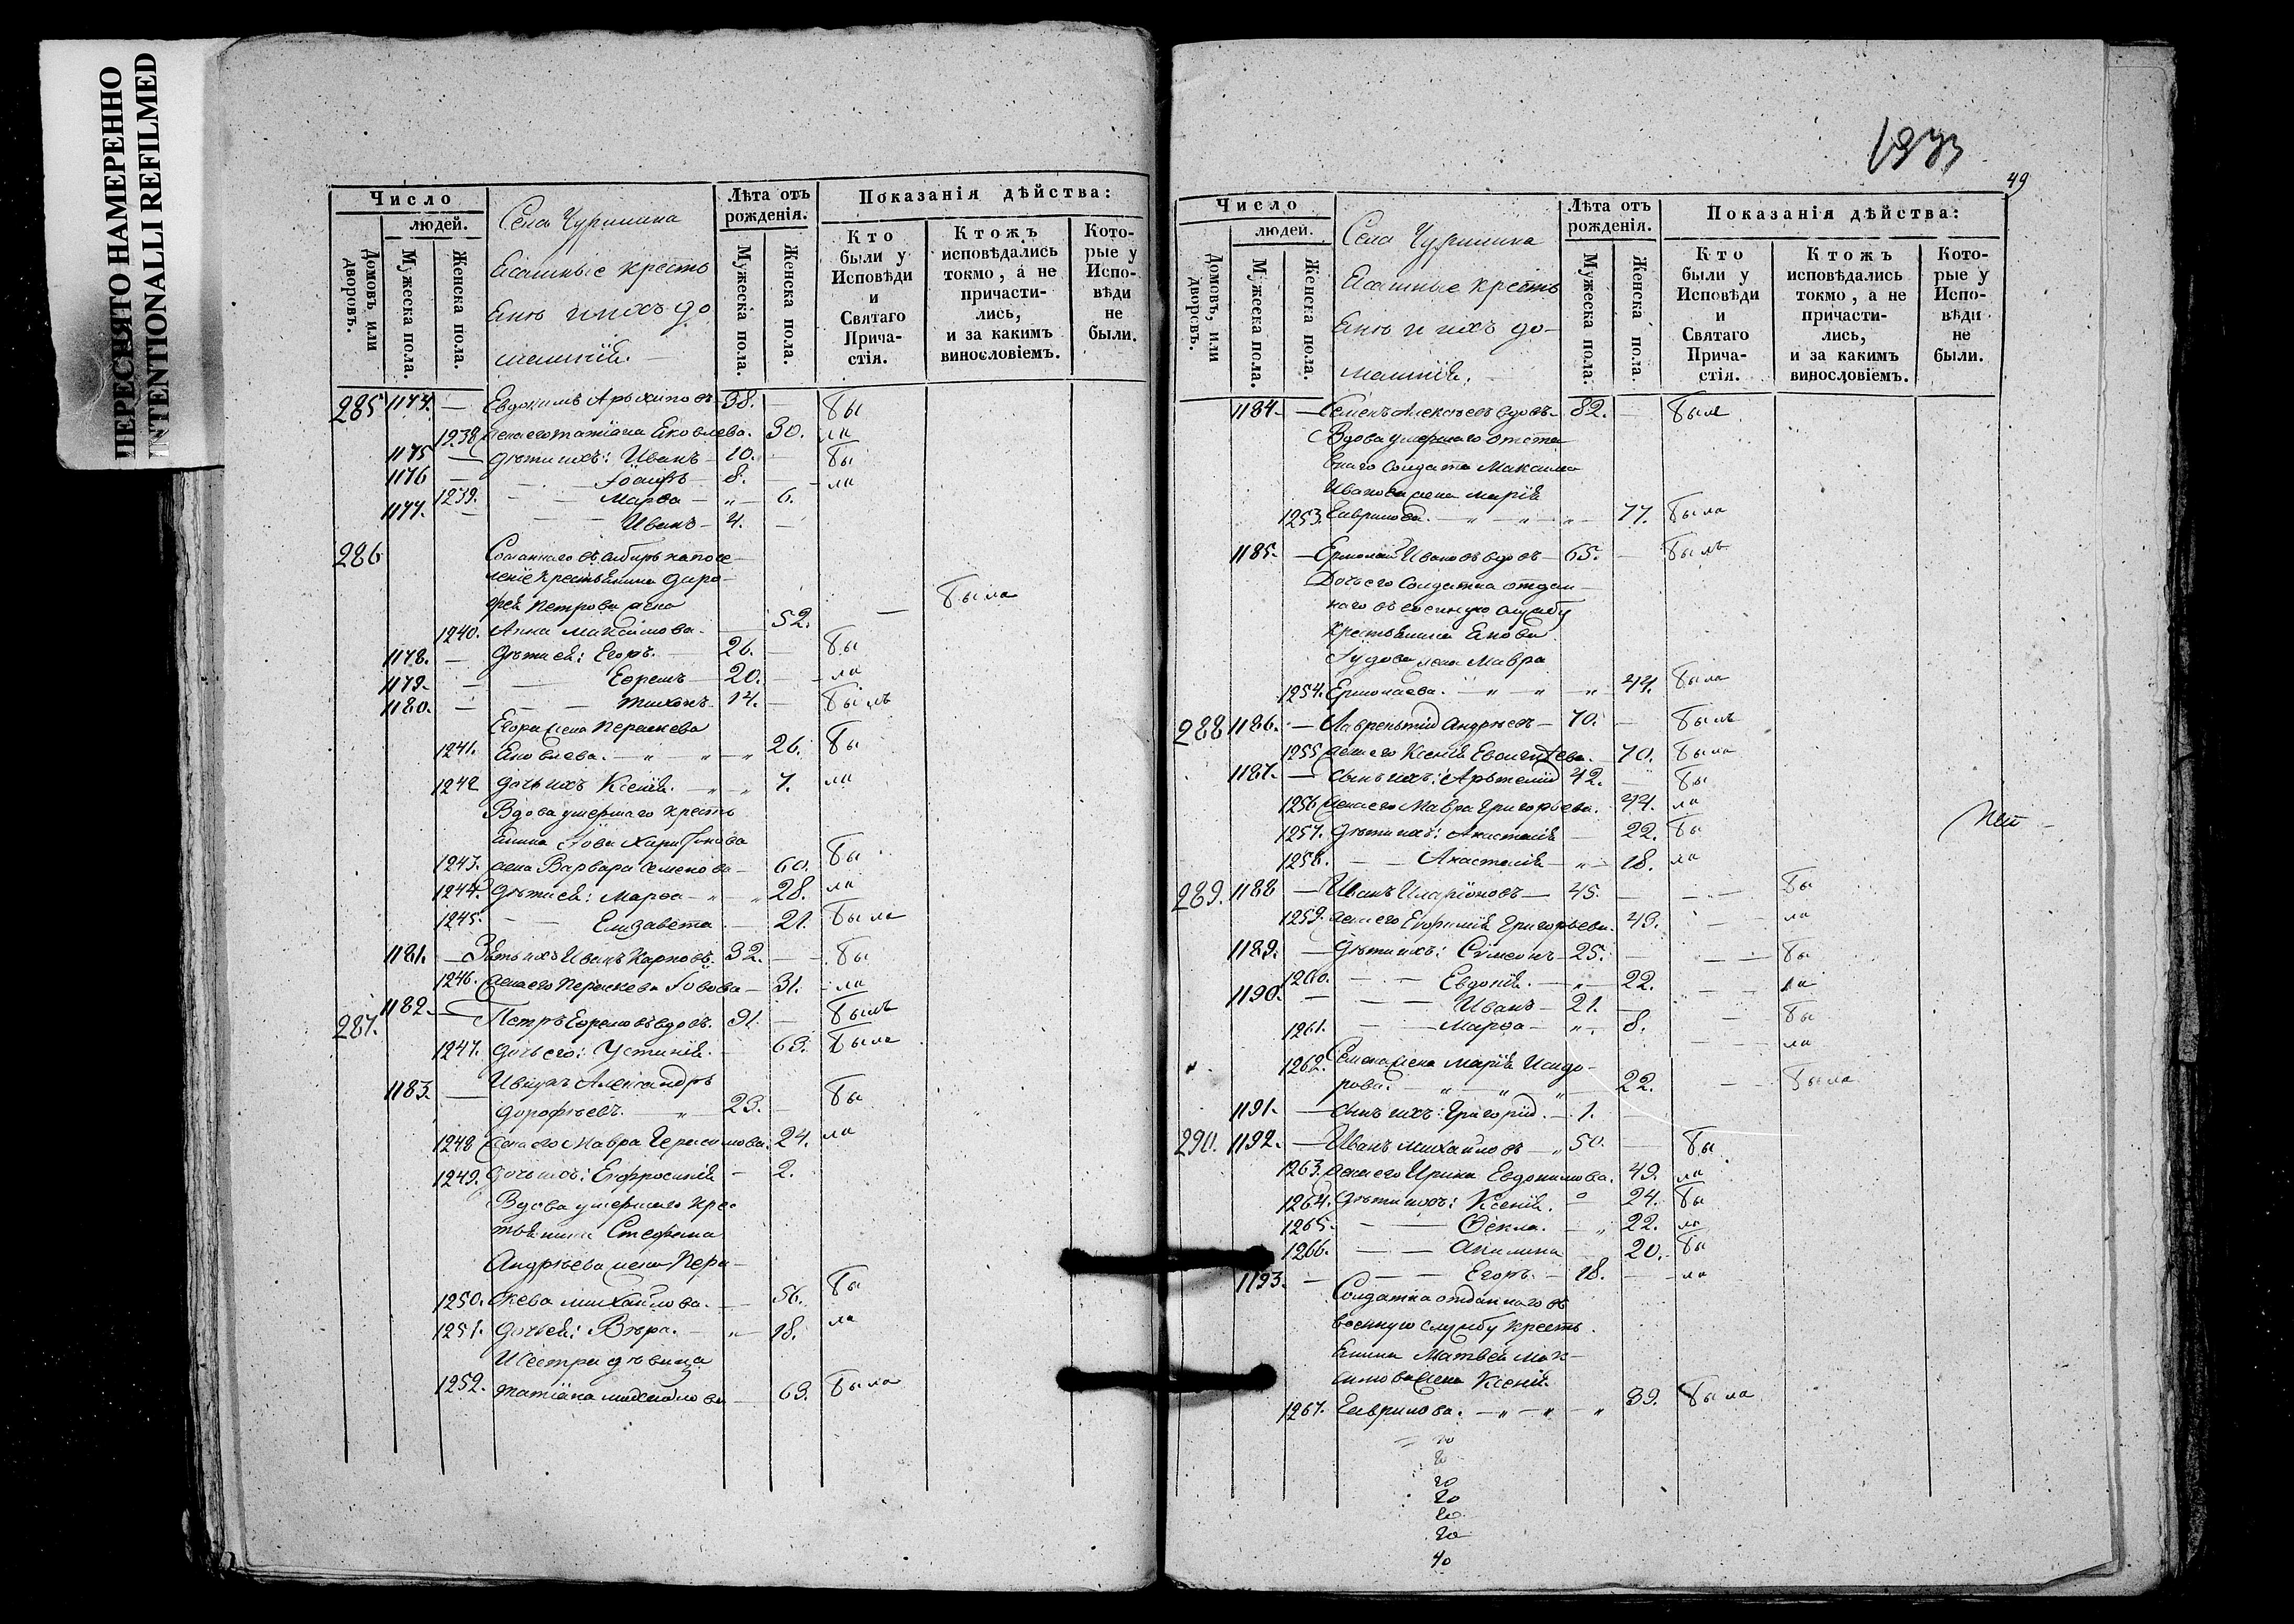 ПЕРЕСНЯТО НАМЕРЕННО
INTENTIONALLI REFILMED
Число
людей.
Домовъ, или дворовъ.
Мужеска пола.
Женска пола.
Села Чурилина
Ясашные кресть
яне и ихъ до
машнія.
Лѣта отъ рожденія.
Мужеска пола.
Женска пола.
Показанія дѣйства:
Кто были у Исповѣди и Святаго Прича-стія.
Ктожъ исповѣдались токмо, а не причасти-лись, и за какимъ винословіемъ.
Кото-рые у Испо-вѣди не были.
285 1174. — Евдокимъ Архиповъ — 38. — бы
1238 жена его Татіана Яковлева. 30. ла
1175 — дѣти ихъ: Иванъ — 10. — бы
1176 — — 8. — ла
1239. — — Марѳа — „ — 6.
1177. — — Иванъ — 4. —
286 Сосланнаго въ сибирь на посе
леніе крестьянина Доро-
фея Петрова жена
1240. Анна Максимова. — 52. — была
1178. — дѣти ея: Егоръ. — 26. — бы
1179. — — Ефремъ — 20. — ла
1180. — — Тихонъ — 14. — былъ
Егора жена Параскева
1241. Яковлева. — „ — „ — „ 26. бы
1242 дочь ихъ Ксенія. — „ — „ 7. ла
Вдова умершаго кресть
янина Іова Харитонова
1243. жена Варвара Семенова — 60. бы
1244. дѣти ея: Марѳа — „ — „ 28. ла
1245. — — Елизавета. — 21. была
1181. — Зять ихъ Иванъ Карповъ. 32. — бы
1246. жена его Параскева Іовова — 31. — ла
287. 1182. — Петръ Ефремовъ вдовъ. 91. — былъ
1247. дочь его: Устинія. — 63. была
1183. — Александръ
Дорофѣевъ. — „ — 23. — бы
1248 жена его Мавра Герасимова. 24. ла
1249. дочь ихъ: Евфросинія — 2.
Вдова умершаго крес
тьянина Стефана
Андрѣева жена Пара-
1250. скева Михайлова. — 56. бы
1251. дочь ея: Вѣра. — „ — 18. ла
И сестра дѣвица
1252. Татіана Михайлова — 63. была
49
Число
людей.
Домовъ, или дворовъ.
Мужеска пола.
Женска пола.
Села Чурилина
Ясашные кресть
яне и ихъ до-
машнія.
Лѣта отъ рожденія.
Мужеска пола.
Женска пола.
Показанія дѣйства:
Кто были у Исповѣди и Святаго Прича-стія.
Ктожъ исповѣдались токмо, а не причасти-лись, и за какимъ винословіемъ.
Кото-рые у Испо-вѣди не были.
1184. — Семенъ Алексѣевъ вдовъ. 82. — былъ
Вдова умершаго отста
внаго солдата Максима
Иванова жена Марія
1253. Гаврилова. — „ — „ — „ — 77. была
1185. — Ермолай Ивановъ вдовъ — 65. — былъ
Дочь его солдатка отдан
наго въ военную службу
крестьянина Якова
жена Мавра
1254. Ермолаева. — „ — „ — „ 44. была
288 1186. — Лаврентій Андрѣевъ — 70. — былъ
1255 жена его Ксенія — 70. была
1187. — сынъ ихъ: Артемій 42. — бы
1256 жена его Мавра Григорьева. 44. ла
1257. дѣти ихъ: Анастасія — 22. бы
1258. — — Анастасія — „ — 18. ла
289. 1188 — Иванъ Иларіоновъ — 45. — — бы
1259. жена его Григорьева. 43. — ла
1189. — дѣти ихъ: Сѵмеонъ — 25. — — бы
1260. — — Евдокія. — „ — 22. — ла
1190. — — Иванъ — 21. — — бы
1261. — — Марѳа — „ — 8. — ла
1262. Семена жена Марія Исидо-
рова. — „ — „ — „ 22. — была
1191. — сынъ ихъ: Григорій. — 1. —
290. 1192. — Иванъ Михайловъ — „ 50. — бы
1263. жена его Ирина Евдокимова. 49. ла
1264. дѣти ихъ: Ксенія. — 24. бы
1265. — — Ѳекла. — „ 22. ла
1266. — — Акилина — 20. бы
1193. — — Егоръ. — 18. — ла
Солдатка отданнаго въ
военную службу кресть
янина Матвея Мак-
симова жена Ксенія
1267. Гаврилова. — „ — „ — „ 39. была
20
20
20
20
20
20
40